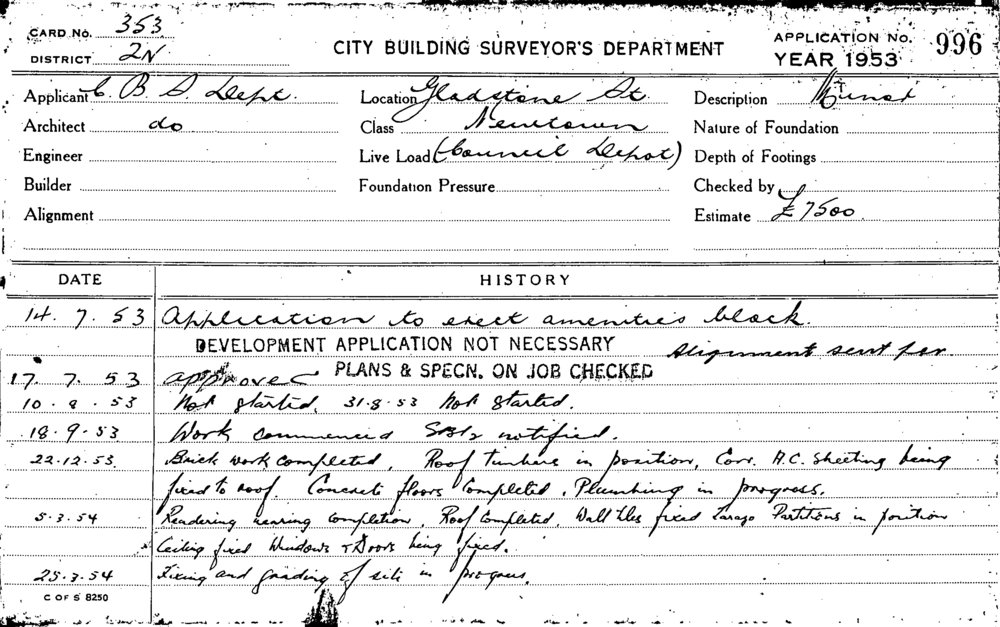 CARD NO. 353
DISTRICT 2N
CITY BUILDING SURVEYOR'S DEPARTMENT
APPLICATION NO. 996
YEAR 1953
Applicant C. B. S. Dept.
Location Gladstone St.
Description
Architect do
Class Newtown
Nature of Foundation
Engineer
Live Load (Council Depot)
Depth of Footings
Builder
Foundation Pressure
Checked by
Alignment
Estimate £7500
DATE HISTORY
14. 7. 53 Application to erect amenities block.
DEVELOPMENT APPLICATION NOT NECESSARY
Alignment sent for
17. 7. 53 approved PLANS & SPECN. ON JOB CHECKED
10. 8. 53 Not started, 31.8.53 Not started.
18.9.53 Work commenced notified.
22.12.53. Brick work completed, Roof Timbers in position, Corr. A.C. Sheeting being
fixed to roof Concrete floors completed, Plumbing in progress.
5.3.54 Rendering nearing completion, Roof Completed, Wall tiles fixed Partitions in position
Ceiling fixed Windows & Doors being fixed.
25.3.54 Fixing and grading of site in progress.
C OF S 8250